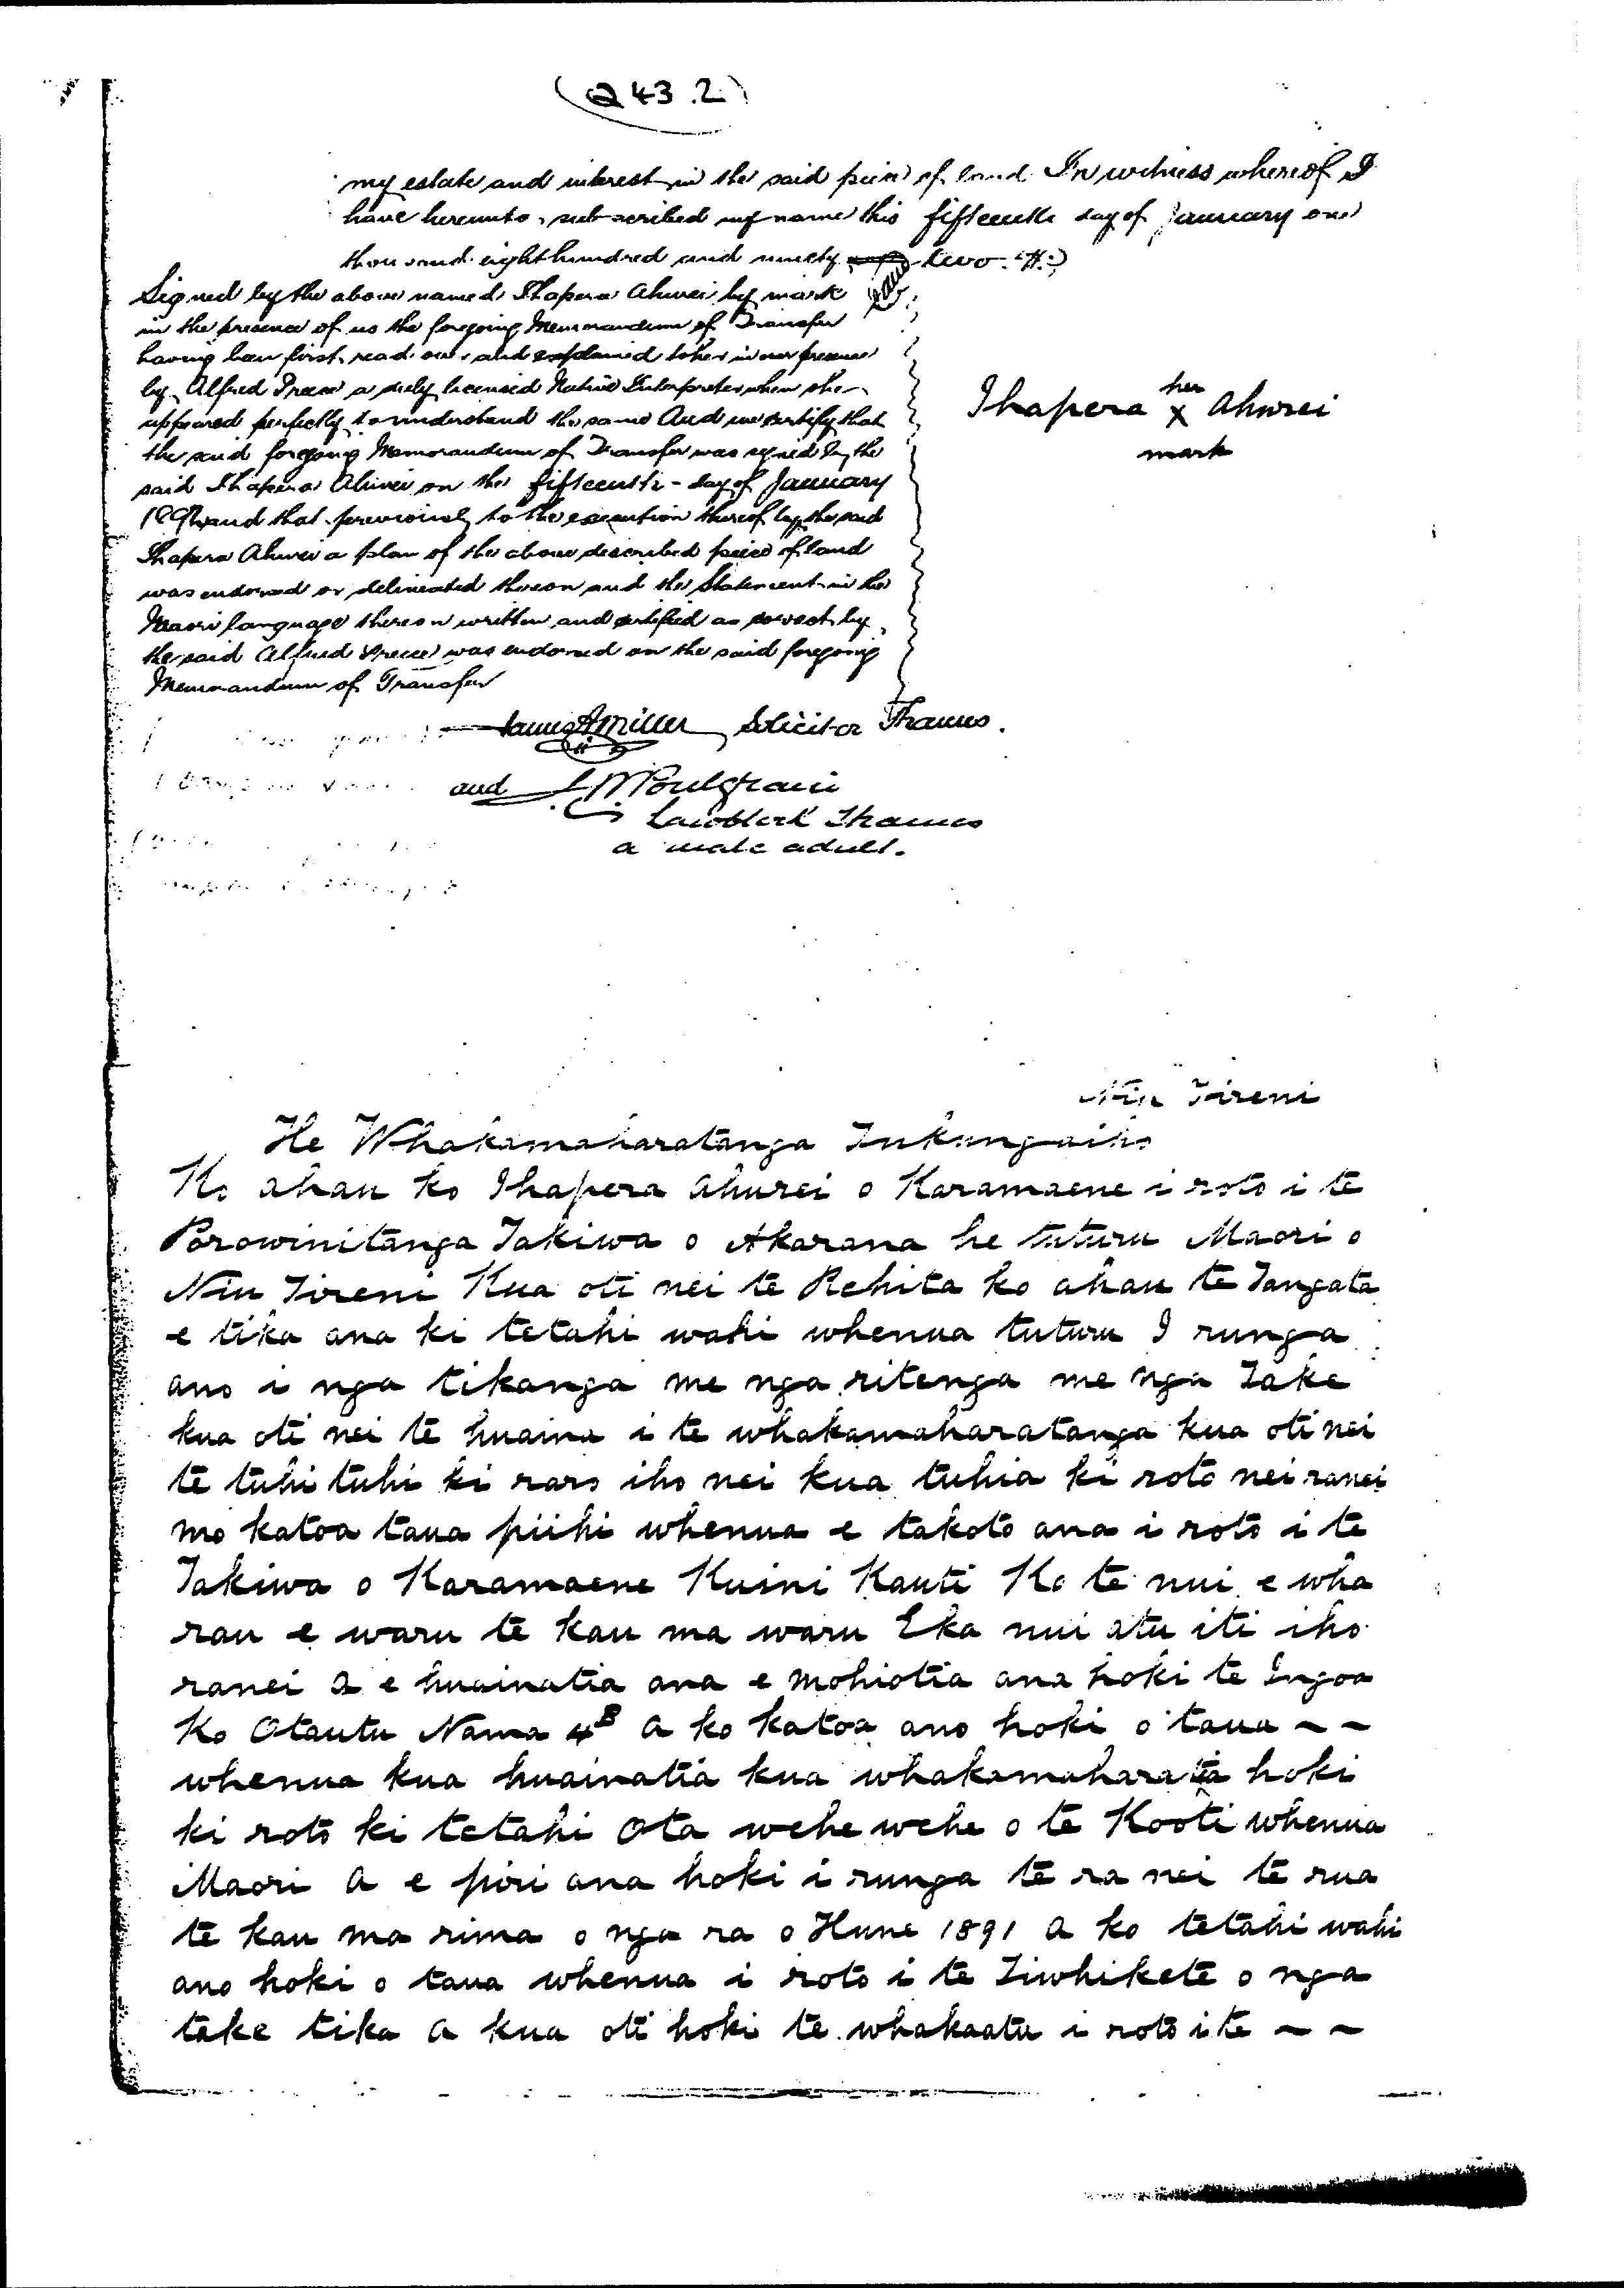 (Q 43.2)
my estate and interest in the said piece of land In witness whereof I
have hereunto subscribed my name this fifteenth day of January one
thousand eight hundred and ninety two
Signed by the above named Ihapera Ahurei by mark
in the presence of us the foregoing Memorandum of Transfer
having been first read over and explained to her in our presence
by Alfred Preece a duly licensed Native Interpreter when she
appeared perfectly to understand the same And we certify that
the said foregoing Memorandum of Transfer was signed by the
said Ihapera Ahurei on the fifteenth - day of January
1892 and that previously to the execution thereof by the said
Ihapera Ahurei a plan of the above described piece of land
was endorsed or delineated thereon and the Statement in the
Maori language thereon written and certified as correct by
the said Alfred Preece was endorsed on the said foregoing
Memorandum of Transfer
Ihapera her x Ahurei
mark
James A Miller Solicitor Thames.
and
Law Clerk Thames
a male adult.
Niu Tireni
He Whakamaharatanga Tukungaiho
Ko ahau ko Ihapera Ahurei o Karamaene i roto i te
Porowinitanga Takiwa o Akarana he tuturu Maori o
Niu Tireni Kua oti nei te Rehita ko ahau te Tangata
e tika ana ki tetahi wahi whenua tuturu I runga
ano i nga tikanga me nga ritenga me nga Take
kua oti nei te huaina i te whakamaharatanga kua oti nei
te tuhi tuhi ki raro iho nei kua tuhia ki roto nei ranei
mo katoa taua piihi whenua e takoto ana i roto i te
Takiwa o Karamaene Kuini Kauti Ko te nui e wha
rau e waru te kau ma waru Eka nui atu iti iho
ranei a e huainatia ana e mohiotia ana hoki te Ingoa
Ko Otautu Nama 4B A ko katoa ano hoki o taua ~ ~
whenua kua huainatia kua whakamaharatia hoki
ki roto ki tetahi Ota wehe wehe o te Kooti whenua
Maori A e piri ana hoki i runga te ra nei te rua
te kau ma rima o nga ra o Hune 1891 A ko tetahi wahi
ano hoki o taua whenua i roto i te Tiwhikete o nga
take tika A kua oti hoki te whakaatu i roto i te ~ ~